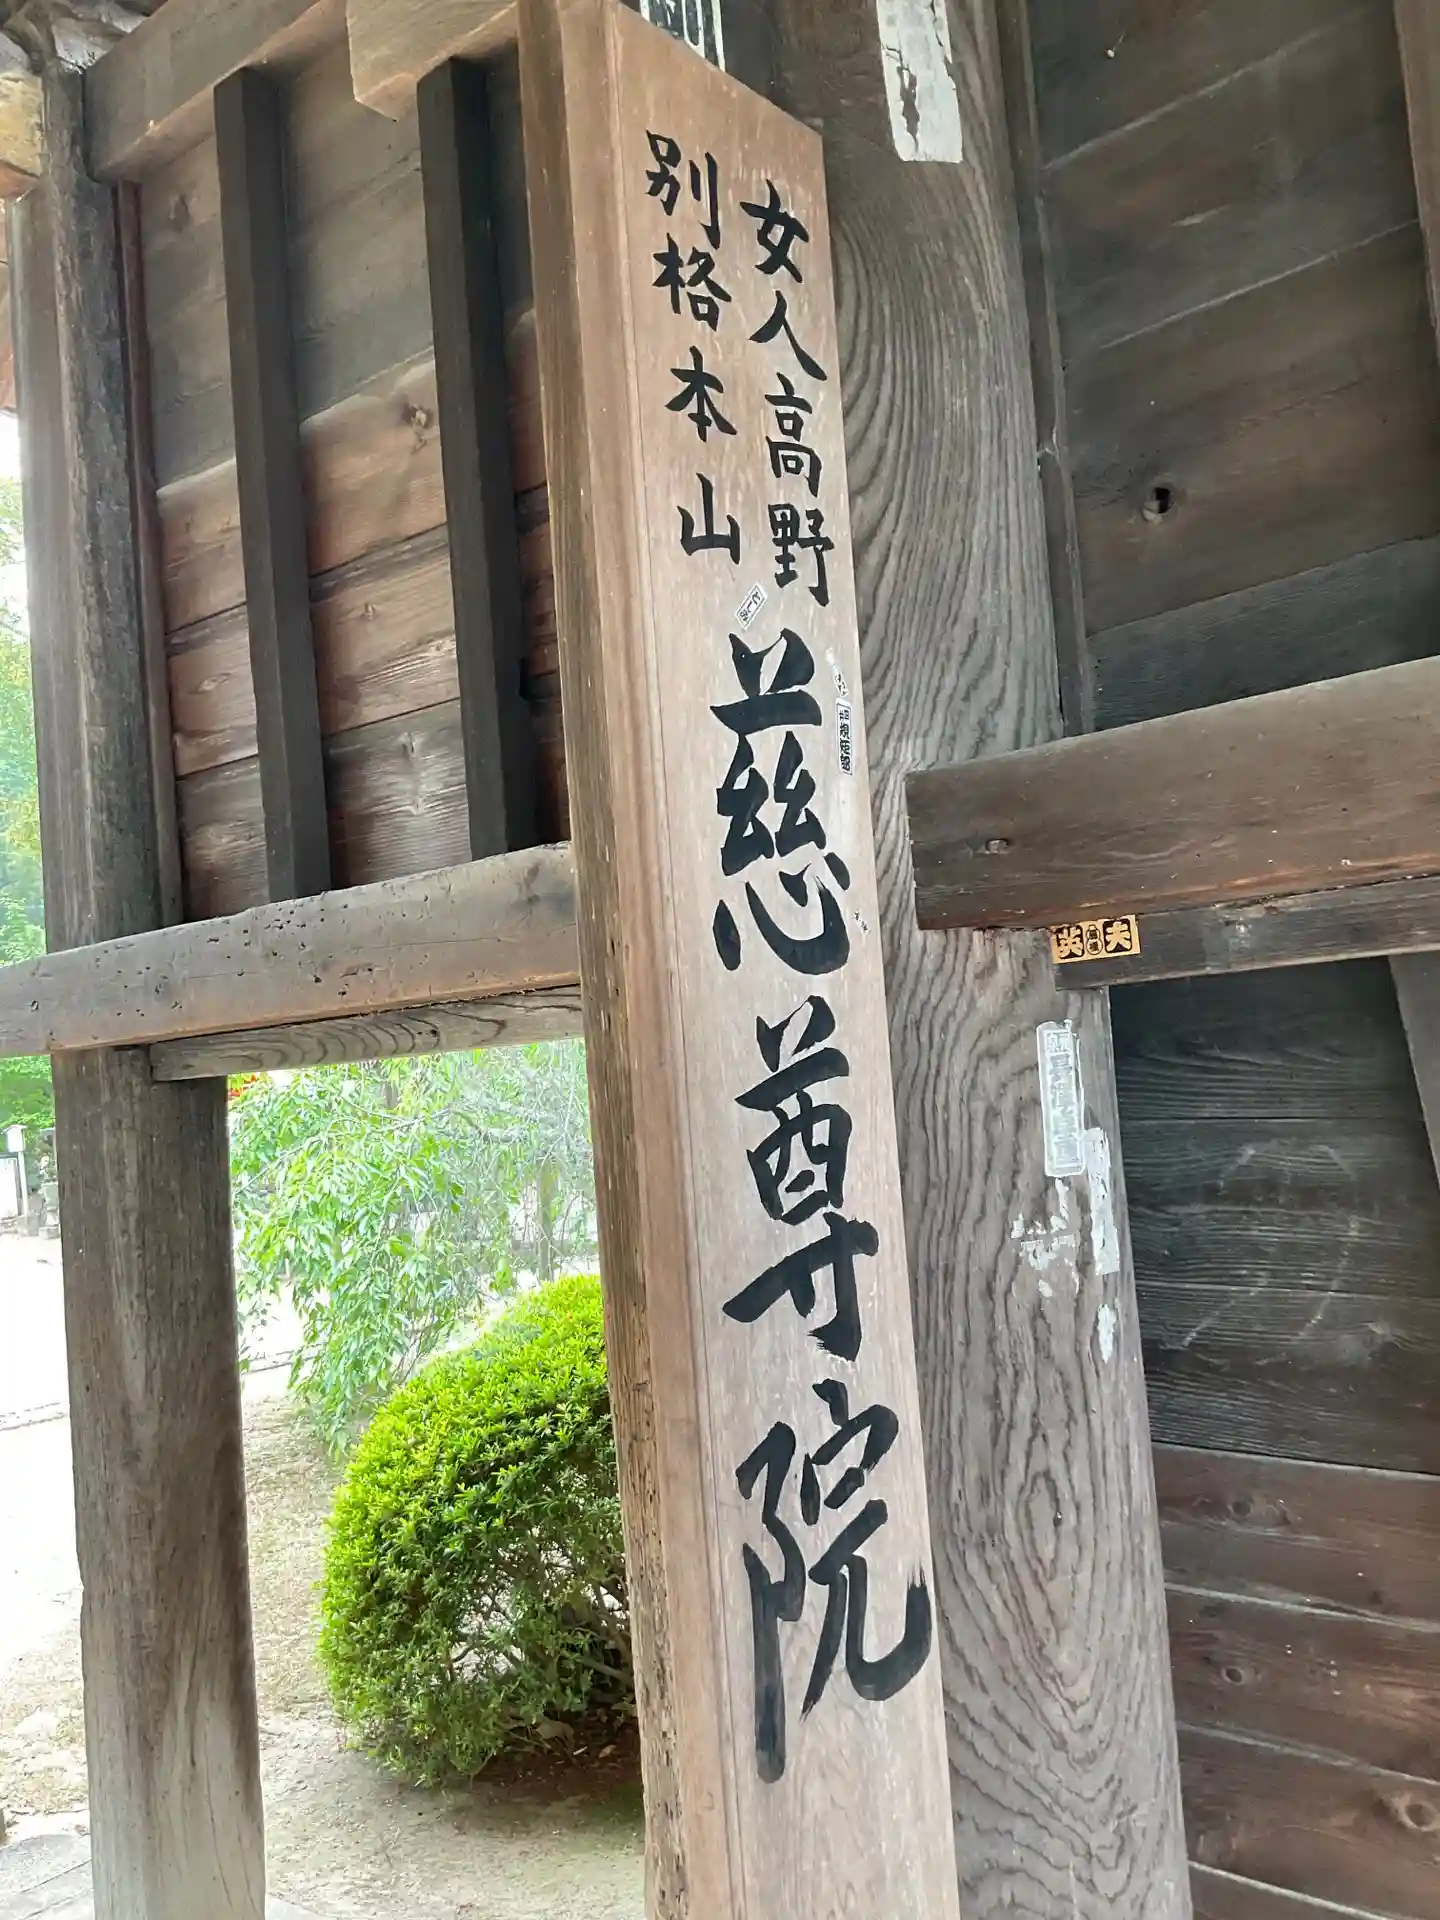 女人高野
別格本山
慈尊院
英
夫